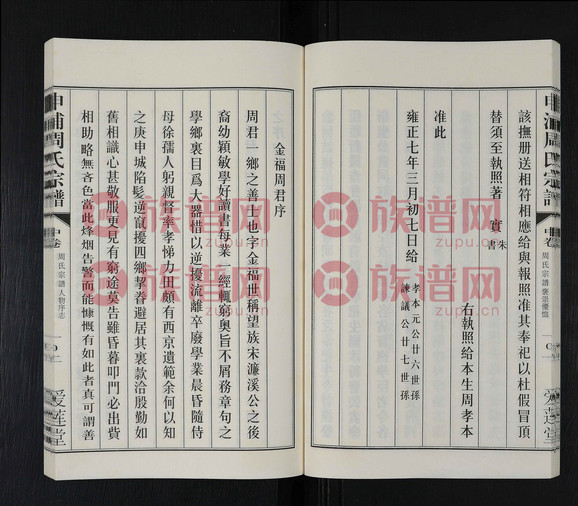 申浦周氏宗譜
中卷
周氏宗譜褒崇優恤
愛蓮堂
該撫册送相符相應給與報照准其奉祀以杜假冒頂
替須至執照著
實
朱書
右執照給本生周孝本
准此
孝本元公廿六世孫
雍正七年三月初七日給
諫議公廿七世孫
金福周君序
周君一鄉之善士也字金福世稱望族宋濂溪公之後
裔幼穎敏學好讀書每業一經輒窮奥旨不屑務章句之
學鄉裏目爲大器惜以逆擾流離卒廢學業晨昏隨侍
母徐孺人躬親督率孝悌力田頗有西京遺範余何以知
之庚申城陷髮逆竄擾四鄉挈眷避居其裏款洽殷勤如
舊相識心甚敬服更見有窮途莫告雖昏暮叩門必出貲
相助略無吝色當此烽烟告警而能慷慨有如此者真可謂善
申浦周氏宗譜
中卷
周氏宗譜人物序志
愛蓮堂
族谱网
zupu.cn